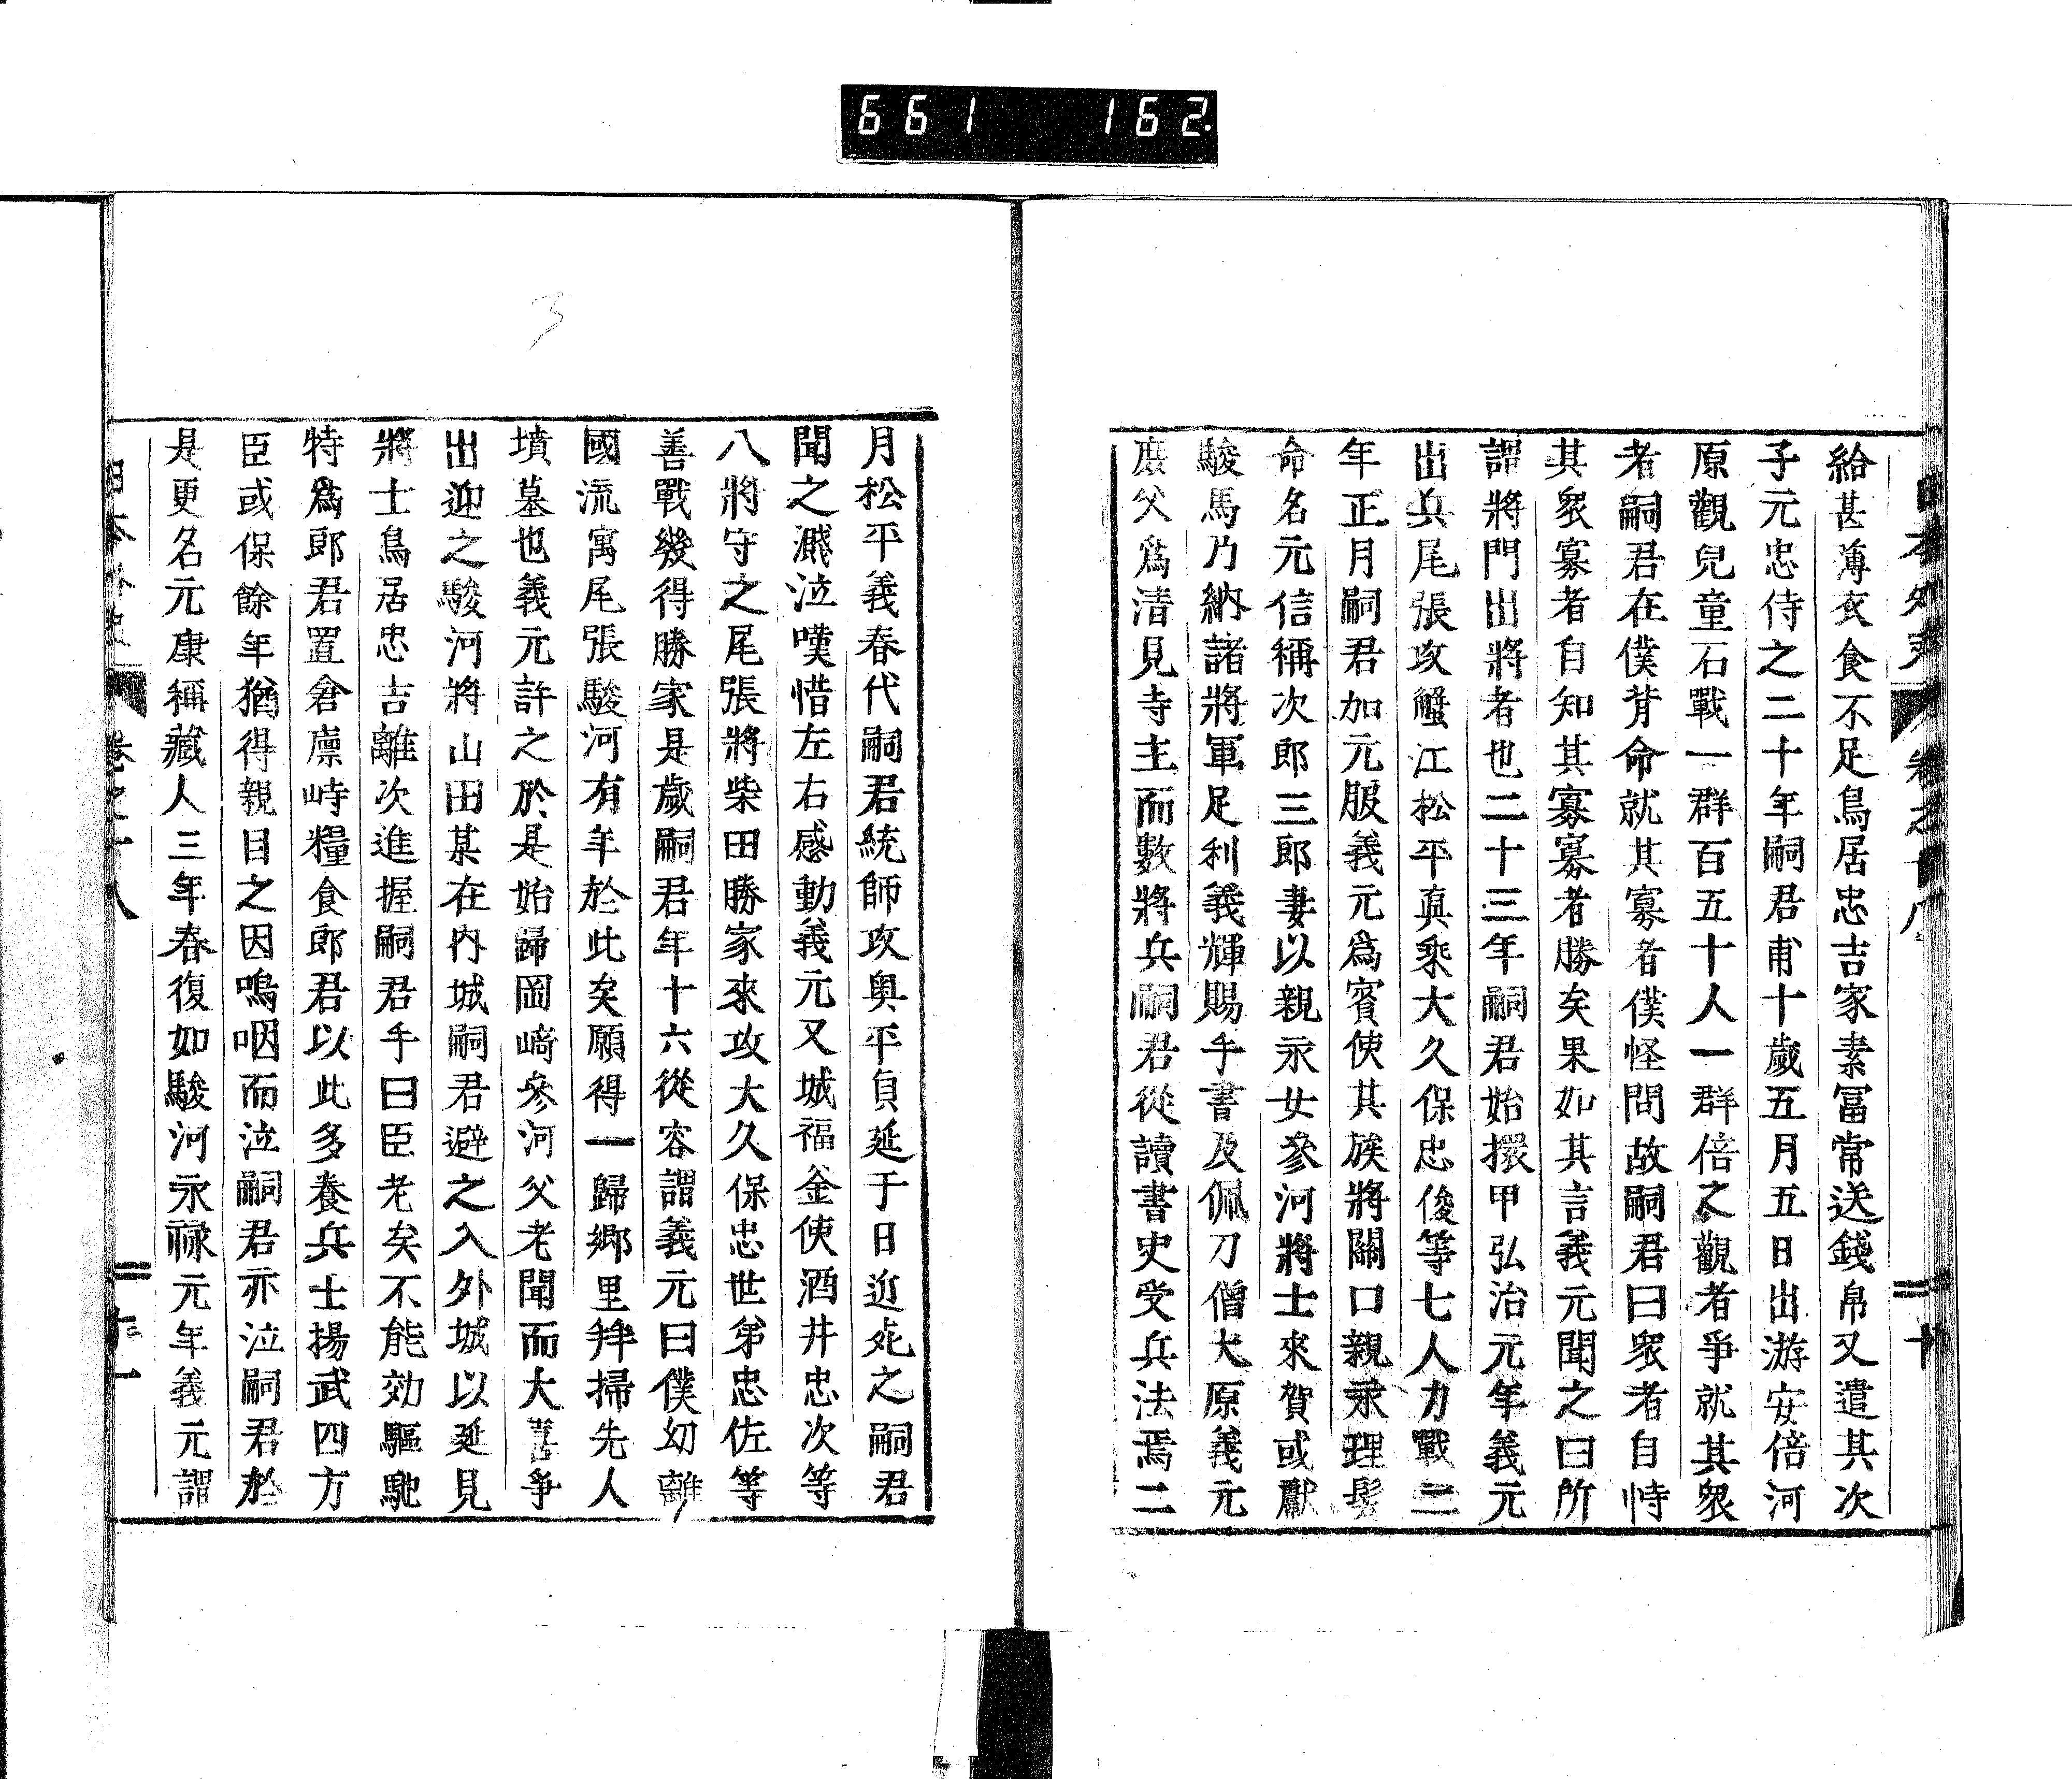 661 162
日本外史 卷之十八 十
給甚薄衣食不足鳥居忠吉家素富常送錢帛又遣其次
子元忠侍之二十年嗣君甫十歲五月五日出游安倍河
原觀兒童石戰一群百五十人一群倍之觀者爭就其衆
者嗣君在僕背命就其寡者僕怪問故嗣君曰衆者自恃
其衆寡者自知其寡寡者勝矣果如其言義元聞之曰所
謂將門出將者也二十三年嗣君始擐甲弘治元年義元
出兵尾張攻蟹江松平眞乘大久保忠俊等七人力戰二
年正月嗣君加元服義元爲賓使其族將關口親永理髮
命名元信稱次郎三郎妻以親永女參河將士來賀或獻
駿馬乃納諸將軍足利義輝賜手書及佩刀僧大原義元
庶父爲清見寺主而數將兵嗣君從讀書史受兵法焉二
月松平義春代嗣君統師攻奧平貞延于日近死之嗣君
聞之濺泣嘆惜左右感動義元又城福釜使酒井忠次等
八將守之尾張將柴田勝家來攻大久保忠世弟忠佐等
善戰幾得勝家是歲嗣君年十六從容謂義元曰僕幼離
國流寓尾張駿河有年於此矣願得一歸鄉里拜掃先人
墳墓也義元許之於是始歸岡崎參河父老聞而大喜爭
出迎之駿河將山田某在內城嗣君避之入外城以延見
將士鳥居忠吉離次進握嗣君手曰臣老矣不能効驅馳
特爲郎君置倉廩峙糧食郎君以此多養兵士揚武四方
臣或保餘年猶得親目之因嗚咽而泣嗣君亦泣嗣君於
是更名元康稱藏人三年春復如駿河永祿元年義元謂
日本外史 卷之十八 十一